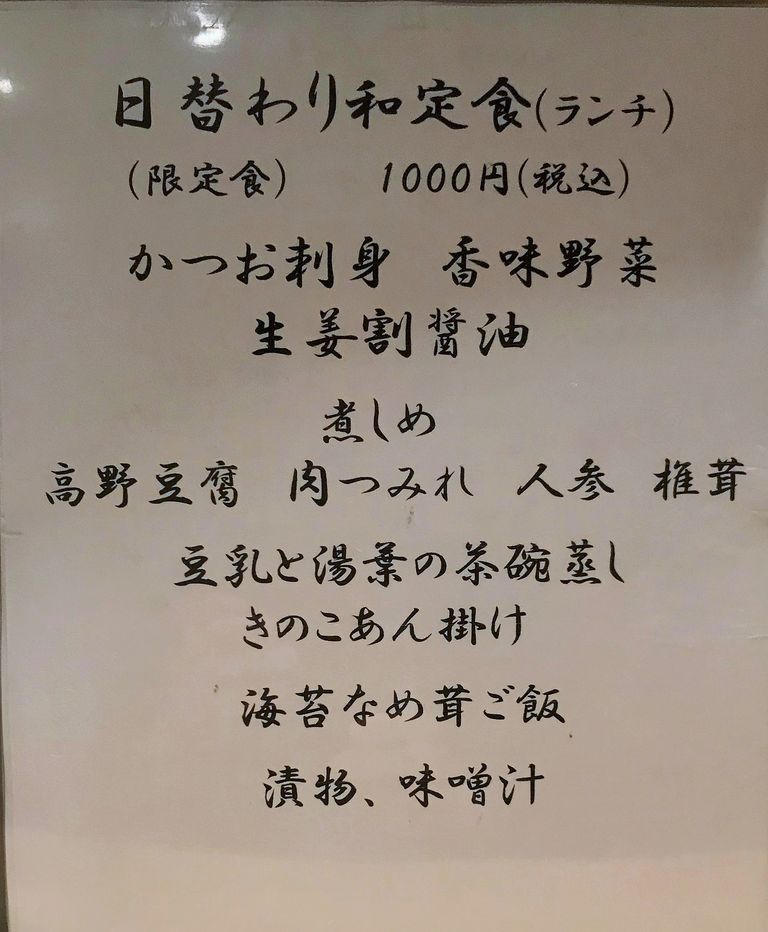 日替わり和定食(ランチ)
(限定食) 1000円(税込)
かつお刺身 香味野菜
生姜割醤油
煮しめ
高野豆腐 肉つみれ 人参 椎茸
豆乳と湯葉の茶碗蒸し
きのこあん掛け
海苔なめ茸ご飯
漬物、味噌汁